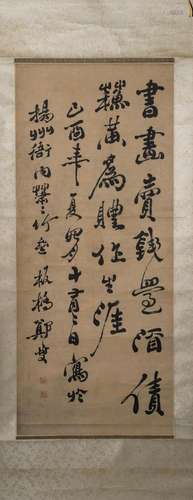 書畫賣錢還酒債
蘸黃為體作生涯
乙酉年夏四月十有二日寫於
揚州衙內叢竹卷板橋鄭燮